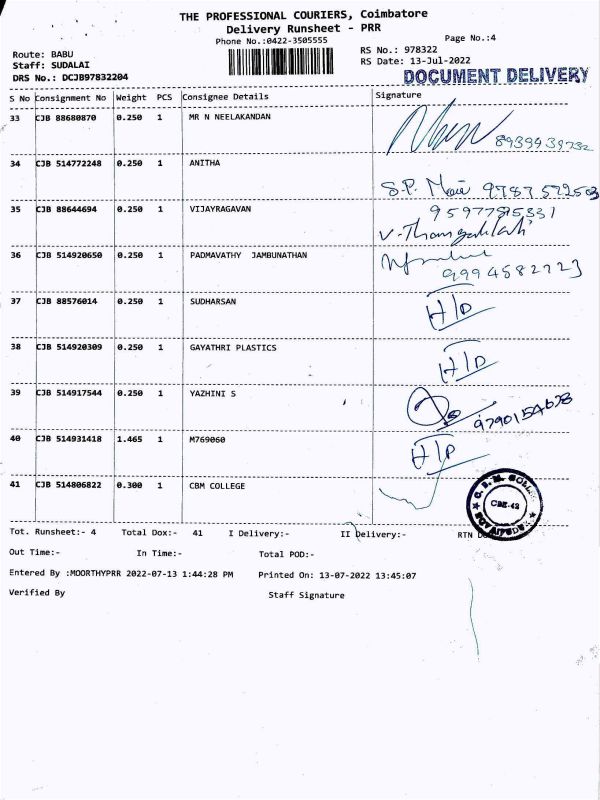 THE PROFESSIONAL COURIERS, Coimbatore
Delivery Runsheet - PRR
Phone No.:0422-3505555
Page No.:4
Route: BABU
RS No.: 978322
Staff: SUDALAI
RS Date: 13-Jul-2022
DRS No.: DCJB97832204
DOCUMENT DELIVERY
S No Consignment No Weight PCS Consignee Details Signature
33 CJB 88680870 0.250 1 MR N NEELAKANDAN
8939939732
34 CJB 514772248 0.250 1 ANITHA
S.P.
35 CJB 88644694 0.250 1 VIJAYRAGAVAN
36 CJB 514920650 0.250 1 PADMAVATHY JAMBUNATHAN
9994582723
37 CJB 88576014 0.250 1 SUDHARSAN H/D
38 CJB 514920309 0.250 1 GAYATHRI PLASTICS H/D
39 CJB 514917544 0.250 1 YAZHINI S
9790154638
40 CJB 514931418 1.465 1 M769060 H/D
41 CJB 514806822 0.300 1 CBM COLLEGE
CBE-42
Tot. Runsheet:- 4 Total Dox:- 41 I Delivery:- II Delivery:- RTN
Out Time:- In Time:- Total POD:-
Entered By :MOORTHYPRR 2022-07-13 1:44:28 PM Printed On: 13-07-2022 13:45:07
Verified By Staff Signature